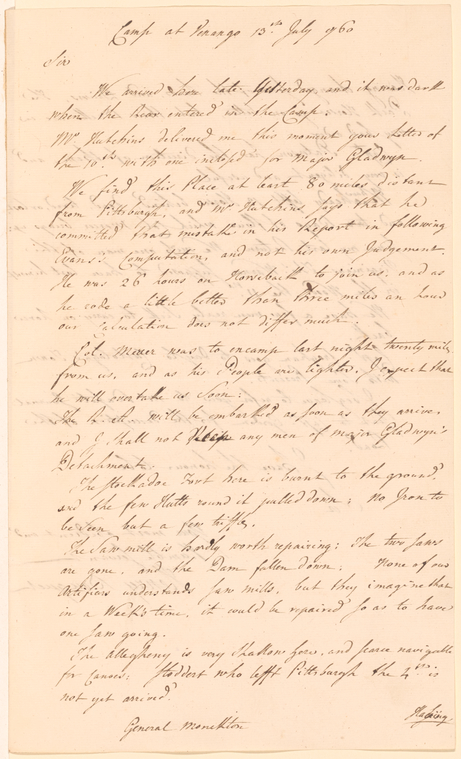 Camp at Venango 13th. July 1760
Sir
We arrived here late Yesterday and it was dark
when the Rear entered in the Camp.
Mr. Hutchins delivered me this moment your Letter of
the 10th. with one inclosed for Major Gladwyn.
We find this Place at least 80 miles distant
from Pittsburgh, and Mr Hutchins says that he
committed that mistake in his Report in following
Evans's Computation, and not his own Judgement.
He was 26 hours on Horseback to join us, and as
he rode a little better than three miles an hour
our Calculation does not differ much.
Col. Mercer was to encamp last night twenty miles
from us, and as his People are lighter, I expect that
he will overtake us Soon:
The will be embarked as soon as they arrive,
and I shall not keep any men of major Gladwyn's
Detachment.
The Stockadoe Fort here is burnt to the ground,
and the few Hutts round it pulled down; no Iron to
be Seen but a few trifles.
The Saw mill is hardly worth repairing: The two Saws
are gone, and the Dam fallen down: None of our
Artificers understands Saw mills, but they imagine that
in a Week's time, it could be repaired so as to have
one Saw going.
The Allegheny is very Shallow here, and scarce navigable
for Canoes: Stoddert who lefft Pittsburgh the 4th. is
not yet arrived.
Having
General Monckton